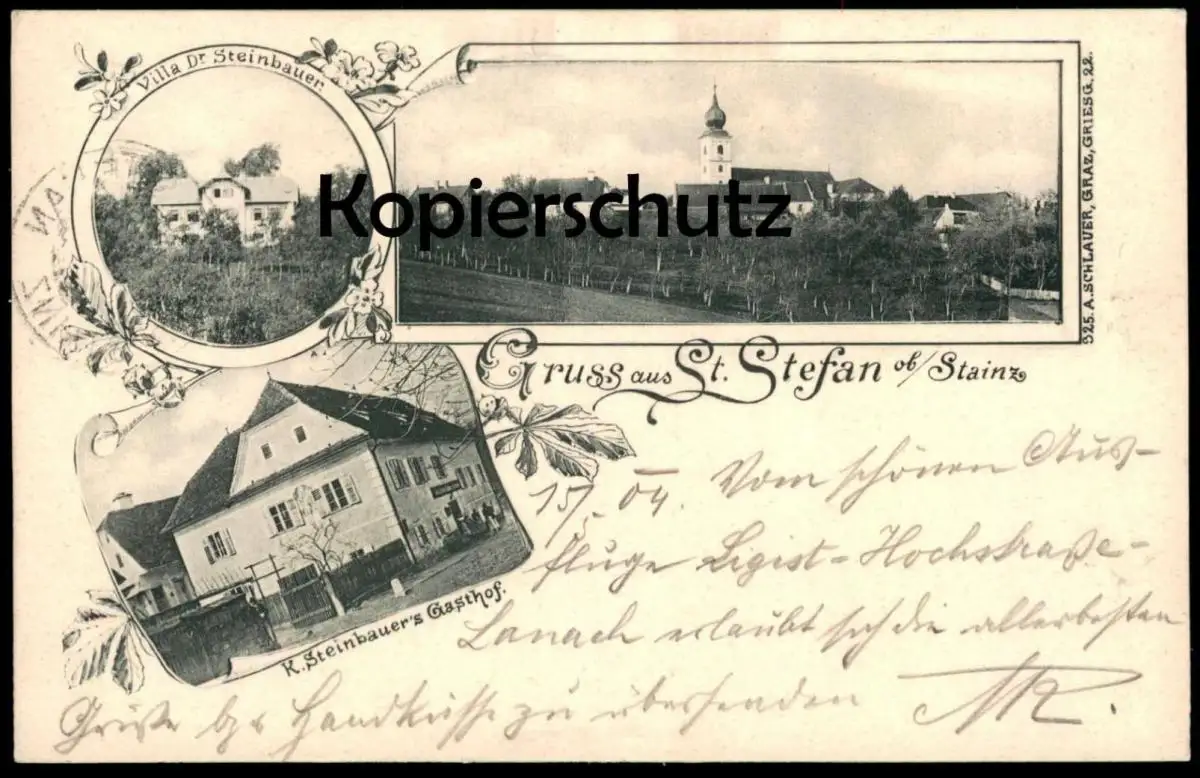 Villa Dr Steinbauer
Kopierschutz
925. A. SCHLAUER, GRAZ, GRIESG. 22.
Gruss aus St. Stefan ob/Stainz
K. Steinbauer's Gasthof.
15/V 04. Vom schönen Aus-
fluge Ligist-Hochstraße-
Lanach erlaubt sich die allerbesten
Grüße bzw Handküsse zu übersenden